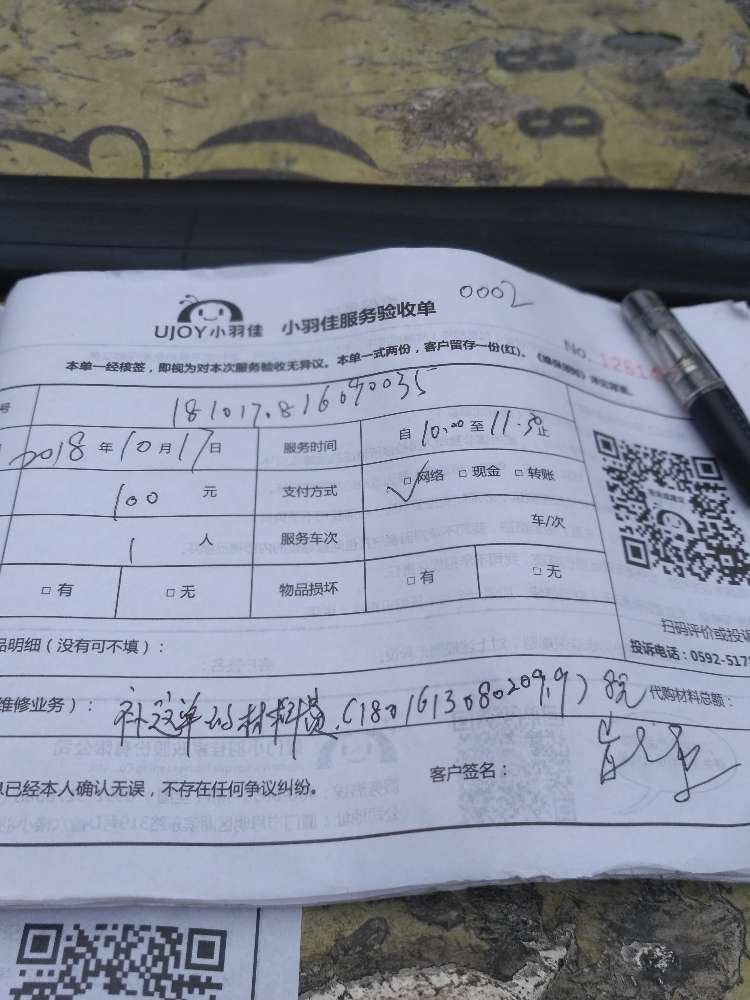 0002
UJOY小羽佳 小羽佳服务验收单
No. 1281
本单一经核签，即视为对本次服务验收无异议。本单一式两份，客户留存一份(红)。
号 181017.816090035
2018年10月17日 服务时间 自10:00至11:30止
100元 支付方式 网络 现金 转账
1人 服务车次 车/次
有 无 物品损坏 有 无
扫码评价或投诉
品明细（没有可不填）：
投诉电话：0592-517
维修业务）： 补这单的材料费 代购材料总额：
息已经本人确认无误，不存在任何争议纠纷。 客户签名：